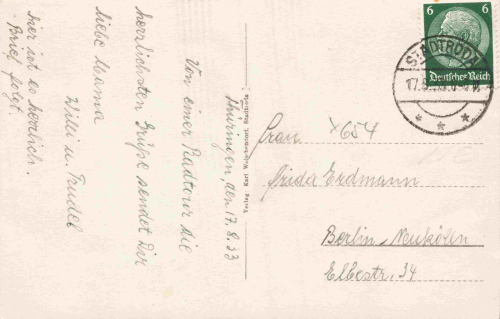 Thüringen, den 17.8.33
Von einer Radtour die
herzlichsten Grüße sendet Dir
liebe Mama
Willi u. Trudel
hier ist es herrlich.
Brief folgt.
Verlag Karl Stadtroda
6 6
Deutsches Reich
STADTRODA
17.8.
Frau
Frida Erdmann
Berlin-Neukölln
Elbestr. 34